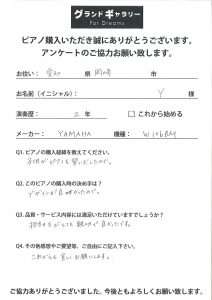 グランドギャラリー
For Dreams
ピアノ購入いただき誠にありがとうございます。
アンケートのご協力お願い致します。
お住い： 愛知 県 岡崎 市
お名前（イニシャル）： Y 様
演奏歴： 2 年 □ これから始める
メーカー： YAMAHA 機種： W106BM
Q1. ピアノの購入経緯を教えてください。
子供がピアノを習いだしたので。
Q2. このピアノの購入時の決め手は？
デザインが良かったので。
Q3. 品質・サービス内容には満足いただけていますでしょうか？
担当の方がとても親切で良かったです。
Q4. その他感想やご要望等、ご自由にご記入下さい。
これからも宜しくお願いします。
ご協力ありがとうございました。今後ともよろしくお願い致します。